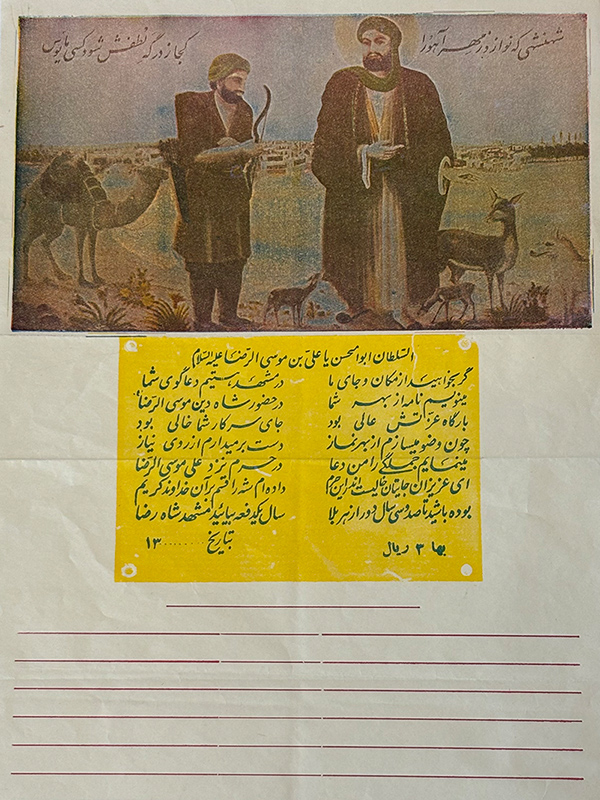 شهنشهی که نوازد ز مهر آهو را
کجا ز درگه لطفش شود کسی مایوس
السلطان ابوامحسن یا علی بن موسی الرضا علیه السلام
گر بخواهید از مکان و جای ما در مشهد هستیم دعاگوی شما
مینویم نامه از بهر شما در حضور شاه دین موسی الرضا
بارگاه عزتش عالی بود جای سرکار شما خالی بود
چون وضو میسازم از بهر نماز دست برمیدارم از روی نیاز
مینمایم جملگی را من دعا در حرم نزد علی موسی الرضا
ای عزیزان جایتان خالیست اندر این حرم داده ام شه را قسم بر آن خداوند کریم
بوده باشید تا صد و سی سال دور از هر بلا سال یکدفعه بیائید مشهد شاه رضا
بها ۳ ریال بتاریخ ........۱۳